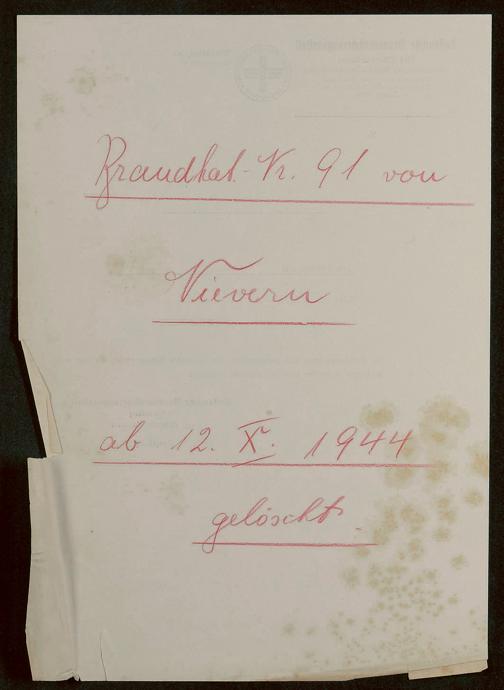 Brandkat.-Nr. 91 von
Nievern
ab 12. X. 1944
gelöscht.